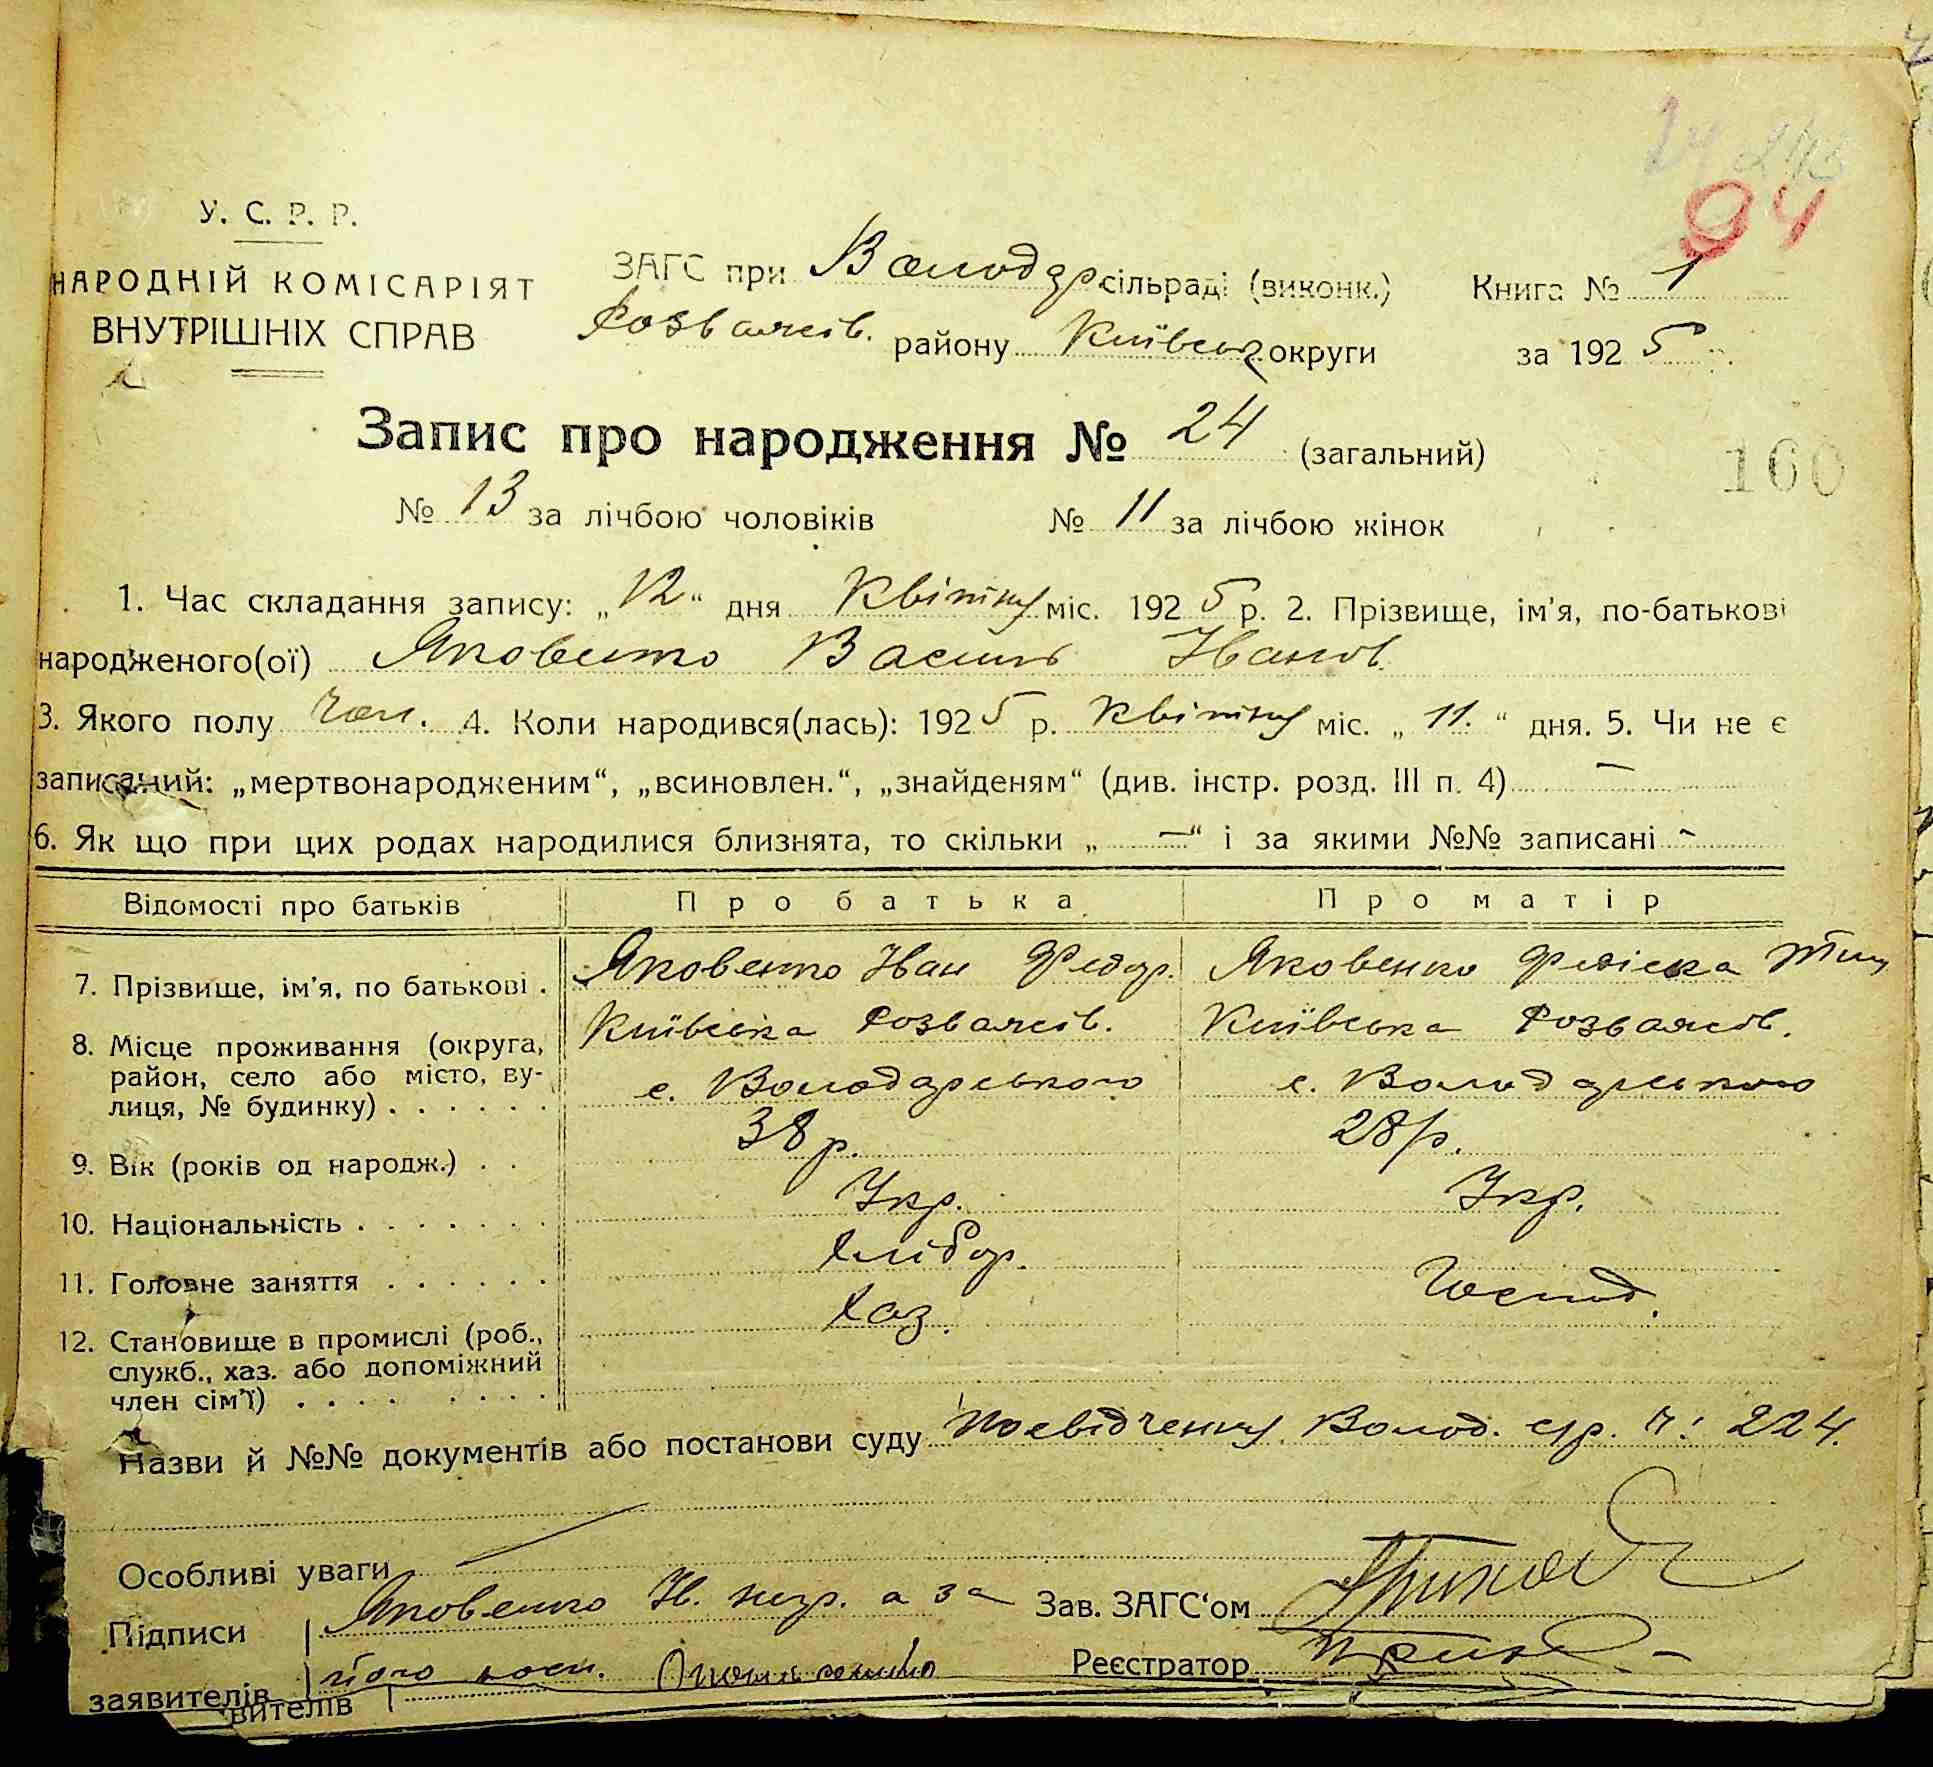 94
У. С. Р. Р.
НАРОДНІЙ КОМІСАРІЯТ
ВНУТРІШНІХ СПРАВ
ЗАГС при Володар сільраді (виконк.) Книга № 1
Розважів. району Київськ округи за 1925 р.
Запис про народження № 24 (загальний)
160
№ 13 за лічбою чоловіків № 11 за лічбою жінок
1. Час складання запису: „12“ дня Квітня міс. 1925 р. 2. Прізвище, ім'я, по-батькові
народженого(ої) Яковенко Василь Іванов.
3. Якого полу Чол. 4. Коли народився(лась): 1925 р. Квітня міс. „11.“ дня. 5. Чи не є
записаний: „мертвонародженим“, „всиновлен.“, „знайденям“ (див. інстр. розд. III п. 4) —
6. Як що при цих родах народилися близнята, то скільки „—“ і за якими №№ записані -
Відомості про батьків Про батька Про матір
7. Прізвище, ім'я, по батькові . Яковенко Іван Федор. Яковенко
8. Місце проживання (округа, Київська Розважів. Київська Розважів.
район, село або місто, ву-
лиця, № будинку) . . . . . . с. Володарського с. Володарського
9. Вік (років од народж.) . . 38 р. 28 р.
10. Національність . . . . . . . Укр. Укр.
11. Головне заняття . . . . . . Хлібор. Господ.
12. Становище в промислі (роб., Хаз.
служб., хаз. або допоміжний
член сім'ї) . . . . . . . .
Назви й №№ документів або постанови суду Посвідчення Волод. с/р. ч: 224.
Особливі уваги
Підписи Яковенко Ів. негр. а за Зав. ЗАГС'ом
заявителів його Реєстратор
вителів